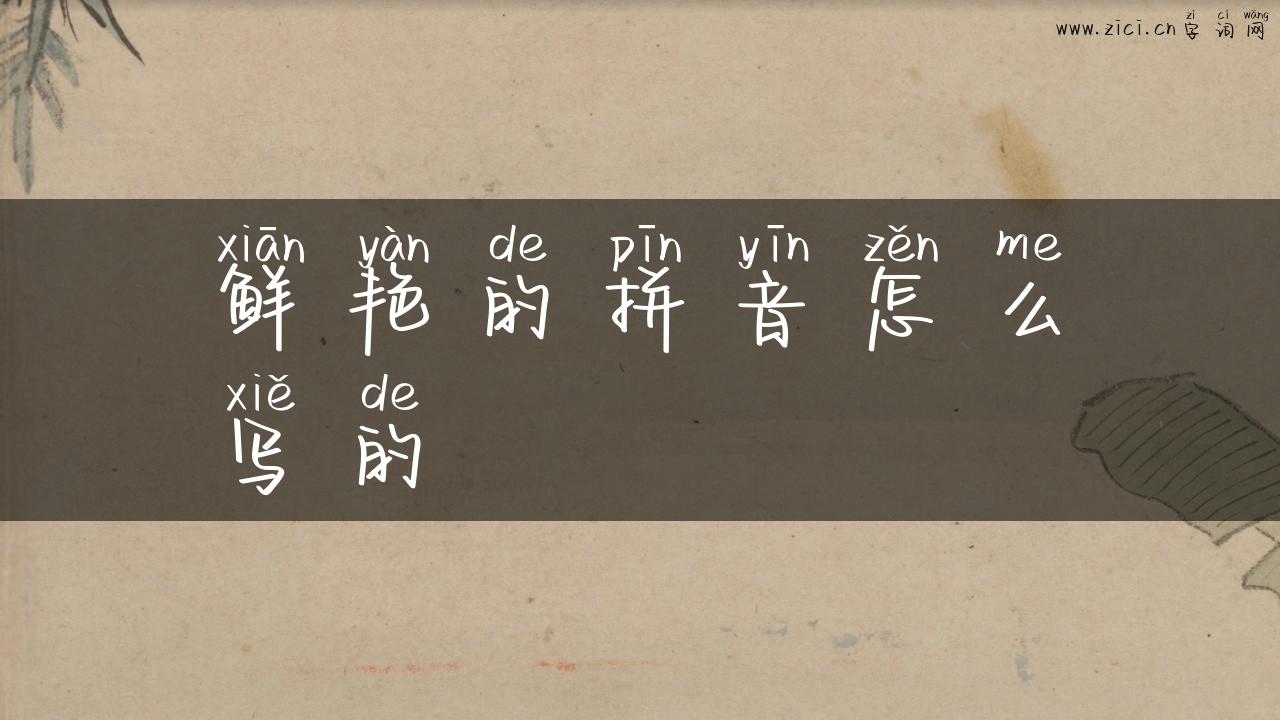 zì cí wǎng
www.zici.cn 字词网
xiān yàn de pīn yīn zěn me
鲜艳的拼音怎么
xiě de
写的